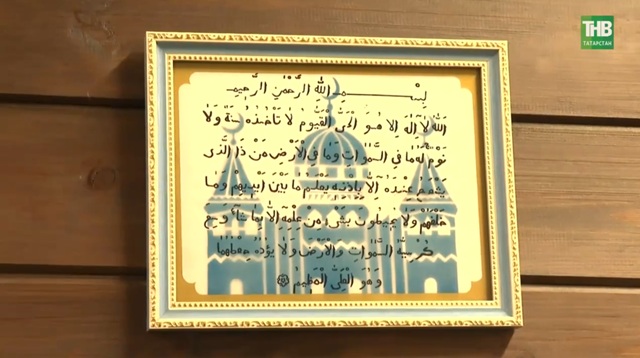 THB
ТАТАРСТАН
بِسْمِ اللّٰهِ الرَّحْمٰنِ الرَّحِيمِ
اَللّٰهُ لَا اِلٰهَ اِلَّا هُوَ الْحَيُّ الْقَيُّومُ لَا تَأْخُذُهُ سِنَةٌ وَلَا
نَوْمٌ لَهُ مَا فِي السَّمٰوَاتِ وَمَا فِي الْاَرْضِ مَنْ ذَا الَّذِي
يَشْفَعُ عِنْدَهُ اِلَّا بِاِذْنِهِ يَعْلَمُ مَا بَيْنَ اَيْدِيهِمْ وَمَا
خَلْفَهُمْ وَلَا يُحِيطُونَ بِشَيْءٍ مِنْ عِلْمِهِ اِلَّا بِمَا شَاءَ وَسِعَ
كُرْسِيُّهُ السَّمٰوَاتِ وَالْاَرْضَ وَلَا يَؤُدُهُ حِفْظُهُمَا
وَهُوَ الْعَلِيُّ الْعَظِيمُ